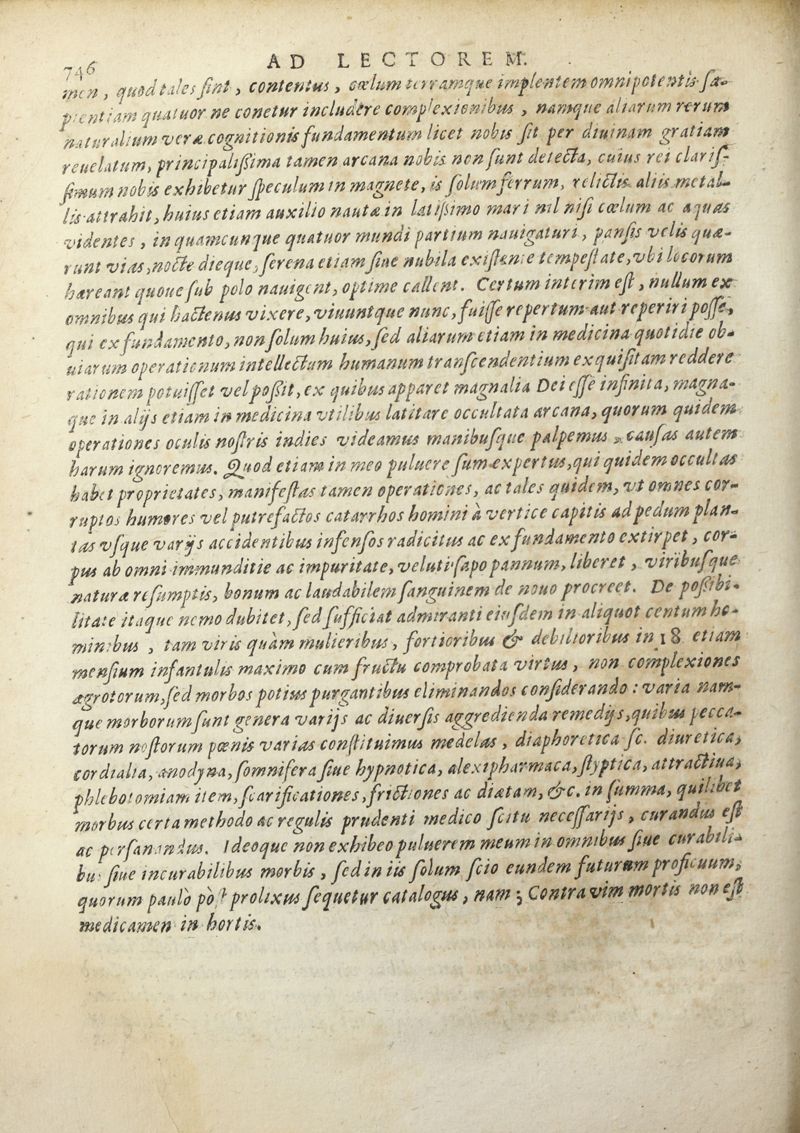 746
AD LECTOREM.
men, quod tales sint, contentus, cœlum terramque implentem omnipotentis sa-
pientiam quatuor ne conetur includere complexionibus, namque aliarum rerum
naturalium veræ cognitionis fundamentum licet nobis sit per diuinam gratiam
reuelatum, principalißima tamen arcana nobis non sunt detecta, cuius rei clariß-
simum nobis exhibetur speculum in magnete, is solum ferrum, relictis aliis metal-
lis attrahit, huius etiam auxilio nautæ in latißimo mari nil nisi cœlum ac aquas
videntes, in quamcunque quatuor mundi partium nauigaturi, pansis velis quæ-
runt vias, nocte dieque, serena etiam siue nubila existente tempestate, vbi locorum
hæreant quoue sub polo nauigent, optime callent. Certum interim est, nullum ex
omnibus qui hactenus vixere, viuuntque nunc, fuisse repertum aut reperiri posse,
qui ex fundamento, non solum huius, sed aliarum etiam in medicina quotidie ob-
uiarum operationum intellectum humanum transcendentium exquisitam reddere
rationem potuisset vel poßit, ex quibus apparet magnalia Dei esse infinita, magna-
que in alijs etiam in medicina vtilibus latitare occultata arcana, quorum quidem
operationes oculis nostris indies videamus manibusque palpemus, causas autem
harum ignoremus. Quod etiam in meo puluere sum expertus, qui quidem occultas
habet proprietates, manifestas tamen operationes, ac tales quidem, vt omnes cor-
ruptos humores vel putrefactos catarrhos homini à vertice capitis ad pedum plan-
tas vsque varijs accidentibus infensos radicitus ac ex fundamento extirpet, cor-
pus ab omni immunditie ac impuritate, veluti sapo pannum, liberet, viribusque
naturæ resumptis, bonum ac laudabilem sanguinem de nouo procreet. De poßibi-
litate itaque nemo dubitet, sed sufficiat admiranti eiusdem in aliquot centum ho-
minibus, tam viris quàm mulieribus, fortioribus & debilioribus in 18 etiam
mensium infantulis maximo cum fructu comprobata virtus, non complexiones
ægrotorum, sed morbos potius purgantibus eliminandos considerando: varia nam-
que morborum sunt genera varijs ac diuersis aggredienda remedijs, quibus pecca-
torum nostrorum pœnis varias constituimus medelas, diaphoretica sc. diuretica,
cordialia, anodyna, somnifera siue hypnotica, alexipharmaca, styptica, attractiua,
phlebotomiam item, scarificationes, frictiones ac diætam, &c. in summa, quilibet
morbus certa methodo ac regulis prudenti medico scitu necessarijs, curandus est
ac persanandus. Ideoque non exhibeo puluerem meum in omnibus siue curabili-
bus siue incurabilibus morbis, sed in iis solum scio eundem futurum proficuum,
quorum paulò pòst prolixus sequetur catalogus, nam; Contra vim mortis non est
medicamen in hortis.